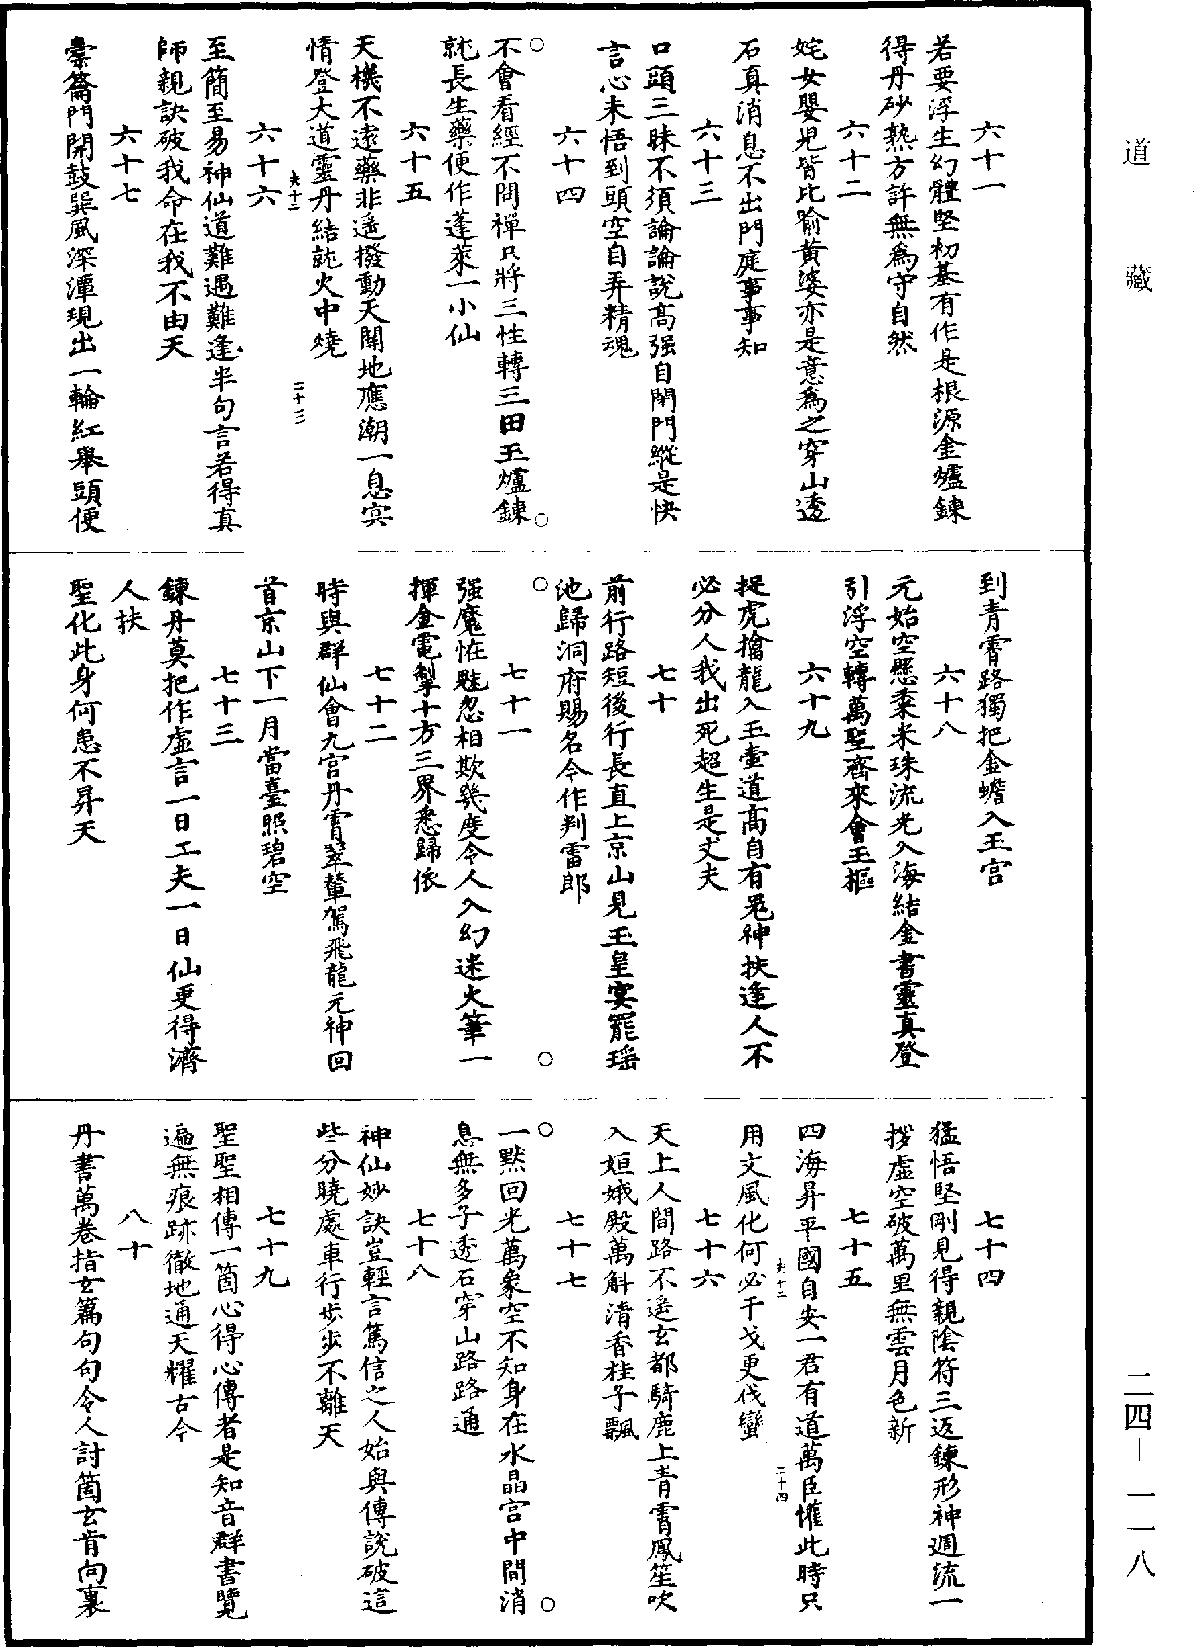 道藏
六十一
若要浮生幻體堅初基有作是根源金爐鍊
得丹砂熟方許無為守自然
六十二
姹女嬰兒皆比喻黃婆亦是意為之穿山透
石真消息不出門庭事事知
六十三
口頭三昧不須論論說高强自閉門縱是快
言心未悟到頭空自弄精魂
六十四
不會看經不問禪只將三性轉三田玉爐鍊
就長生藥便作蓬萊一小仙
六十五
天機不遠藥非遙撥動天關地應潮一息宾
情登大道靈丹結就火中燒
夫十二
二十三
六十六
至簡至易神仙道難遇難逢半句言若得真
師親訣破我命在我不由天
六十七
橐籥門開鼓巽風深潭現出一輪紅舉頭便
到青霄路獨把金蟾入玉宮
六十八
元始空懸黍米珠流光入海結金書靈真登
引浮空轉萬聖齊來會玉樞
六十九
捉虎擒龍入玉壺道高自有鬼神扶逢人不
必分人我出死超生是丈夫
七十
前行路短後行長直上京山見玉皇宴罷瑶
池歸洞府賜名令作判雷郎
七十一
强魔恠魅忽相欺幾度令人入幻迷火筆一
揮金電掣十方三界悉歸依
七十二
時與群仙會九宮丹霄翠輦駕飛龍元神回
首京山下一月當臺照碧空
七十三
鍊丹莫把作虛言一日工夫一日仙更得濟
人扶
聖化此身何患不昇天
七十四
猛悟堅剛見得親陰符三返鍊形神週流一
拶虛空破萬里無雲月色新
七十五
四海昇平國自安一君有道萬臣懽此時只
用文風化何必干戈更伐蠻
夫十二
二十四
七十六
天上人間路不遙玄都騎鹿上青霄鳳笙吹
入姮娥殿萬斛清香桂子飄
七十七
一點回光萬象空不知身在水晶宮中間消
息無多子透石穿山路路通
七十八
神仙妙訣豈輕言篤信之人始與傳說破這
些分曉處車行步步不離天
七十九
聖聖相傳一箇心得心傳者是知音群書覽
遍無痕跡徹地通天耀古今
八十
丹書萬卷指玄篇句句令人討箇玄肯向裏
二四－一一八